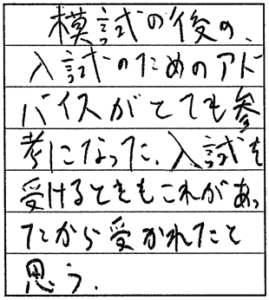 模試の後の、
入試のためのアド
バイスがとても参
考になった、入試を
受けるときもこれがあっ
たから受かれたと
思う.